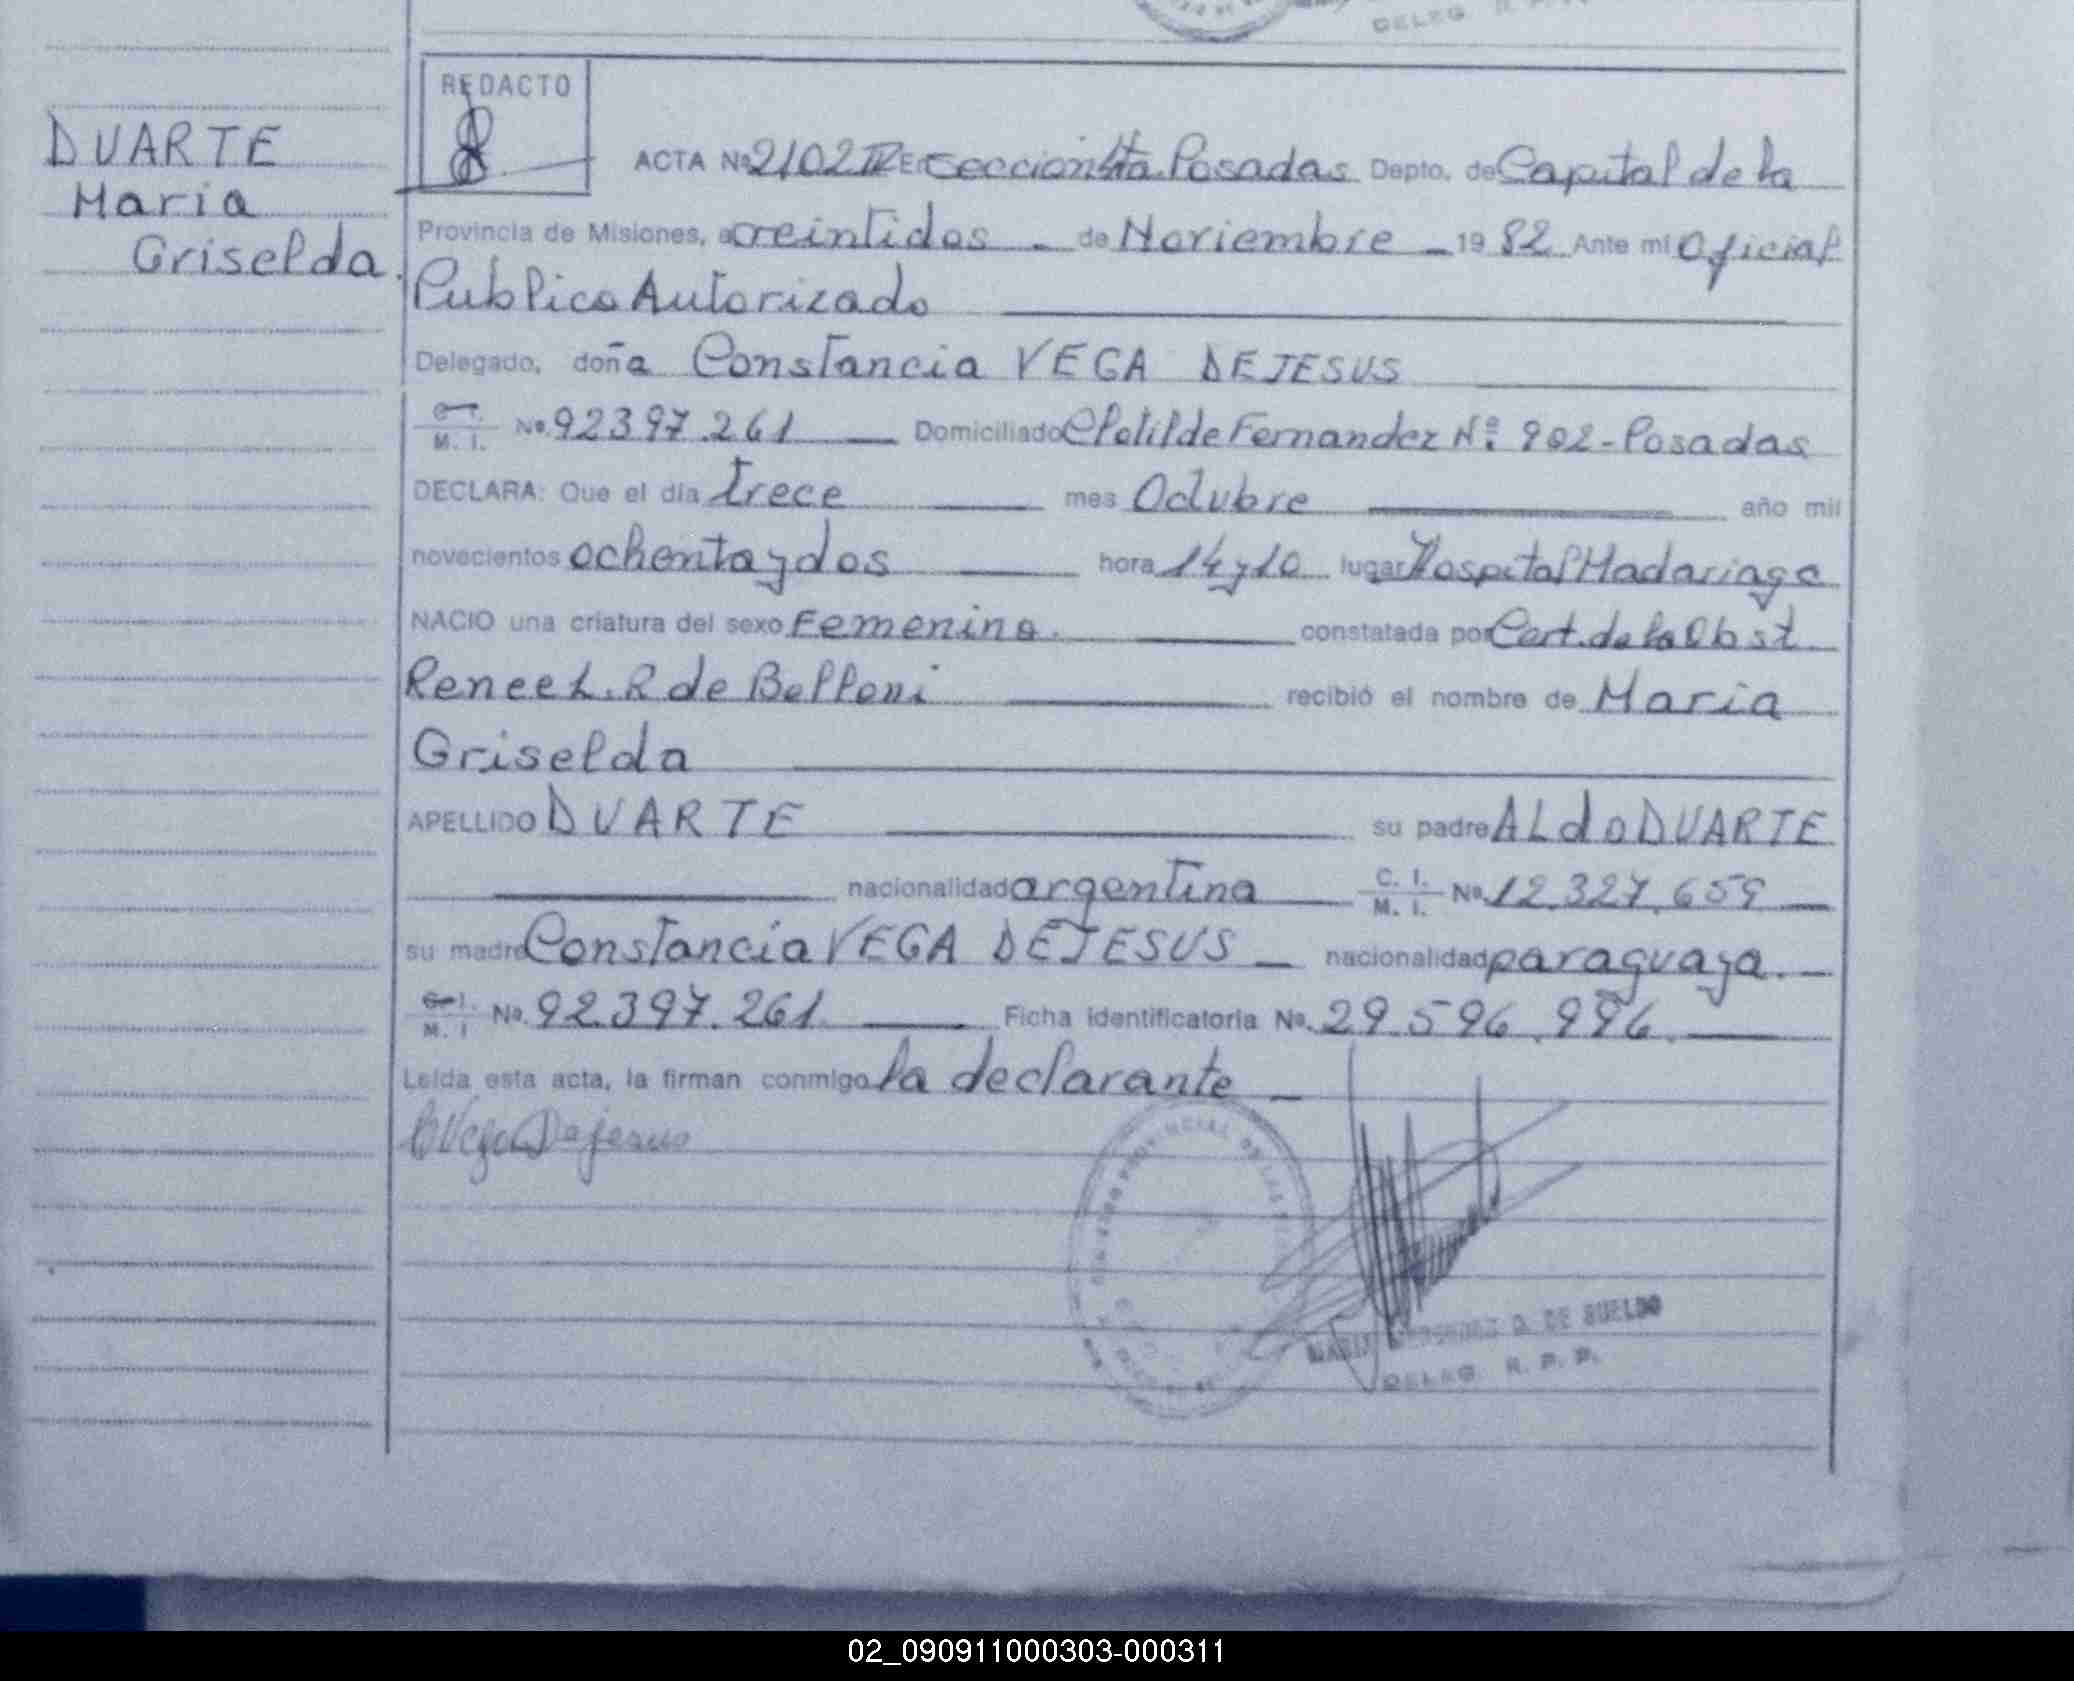 DELEG
REDACTO
DUARTE
Maria
Griselda.
ACTA Nº 2102 IV En seccion 4ta. Posadas Depto. de Capital de la
Provincia de Misiones, a veintidos - de Noviembre - 1982 Ante mi Oficial
Publico Autorizado
Delegado, doña Constancia VEGA DEJESUS
C. I. / M. I. Nº 92397.261 Domiciliado Clotilde Fernandez Nº: 902 - Posadas
DECLARA: Que el día trece mes Octubre año mil
novecientos ochenta y dos hora 14 y 10 lugar Hospital Madariaga
NACIO una criatura del sexo Femenino. constatada por Cert. de la Obst
Renee L. R de Belloni recibió el nombre de Maria
Griselda
APELLIDO DUARTE su padre ALdo DUARTE
nacionalidad argentina C. I. / M. I. Nº 12.327.659
su madre Constancia VEGA DEJESUS nacionalidad paraguaya.
C. I. / M. I Nº 92.397.261 Ficha identificatoria Nº 29.596.996.
Leída esta acta, la firman conmigo la declarante
CVega Dejesus
PROVINCIAL DE LAS
D. DE SUELDO
DELEG R. P. P.
02_090911000303-000311